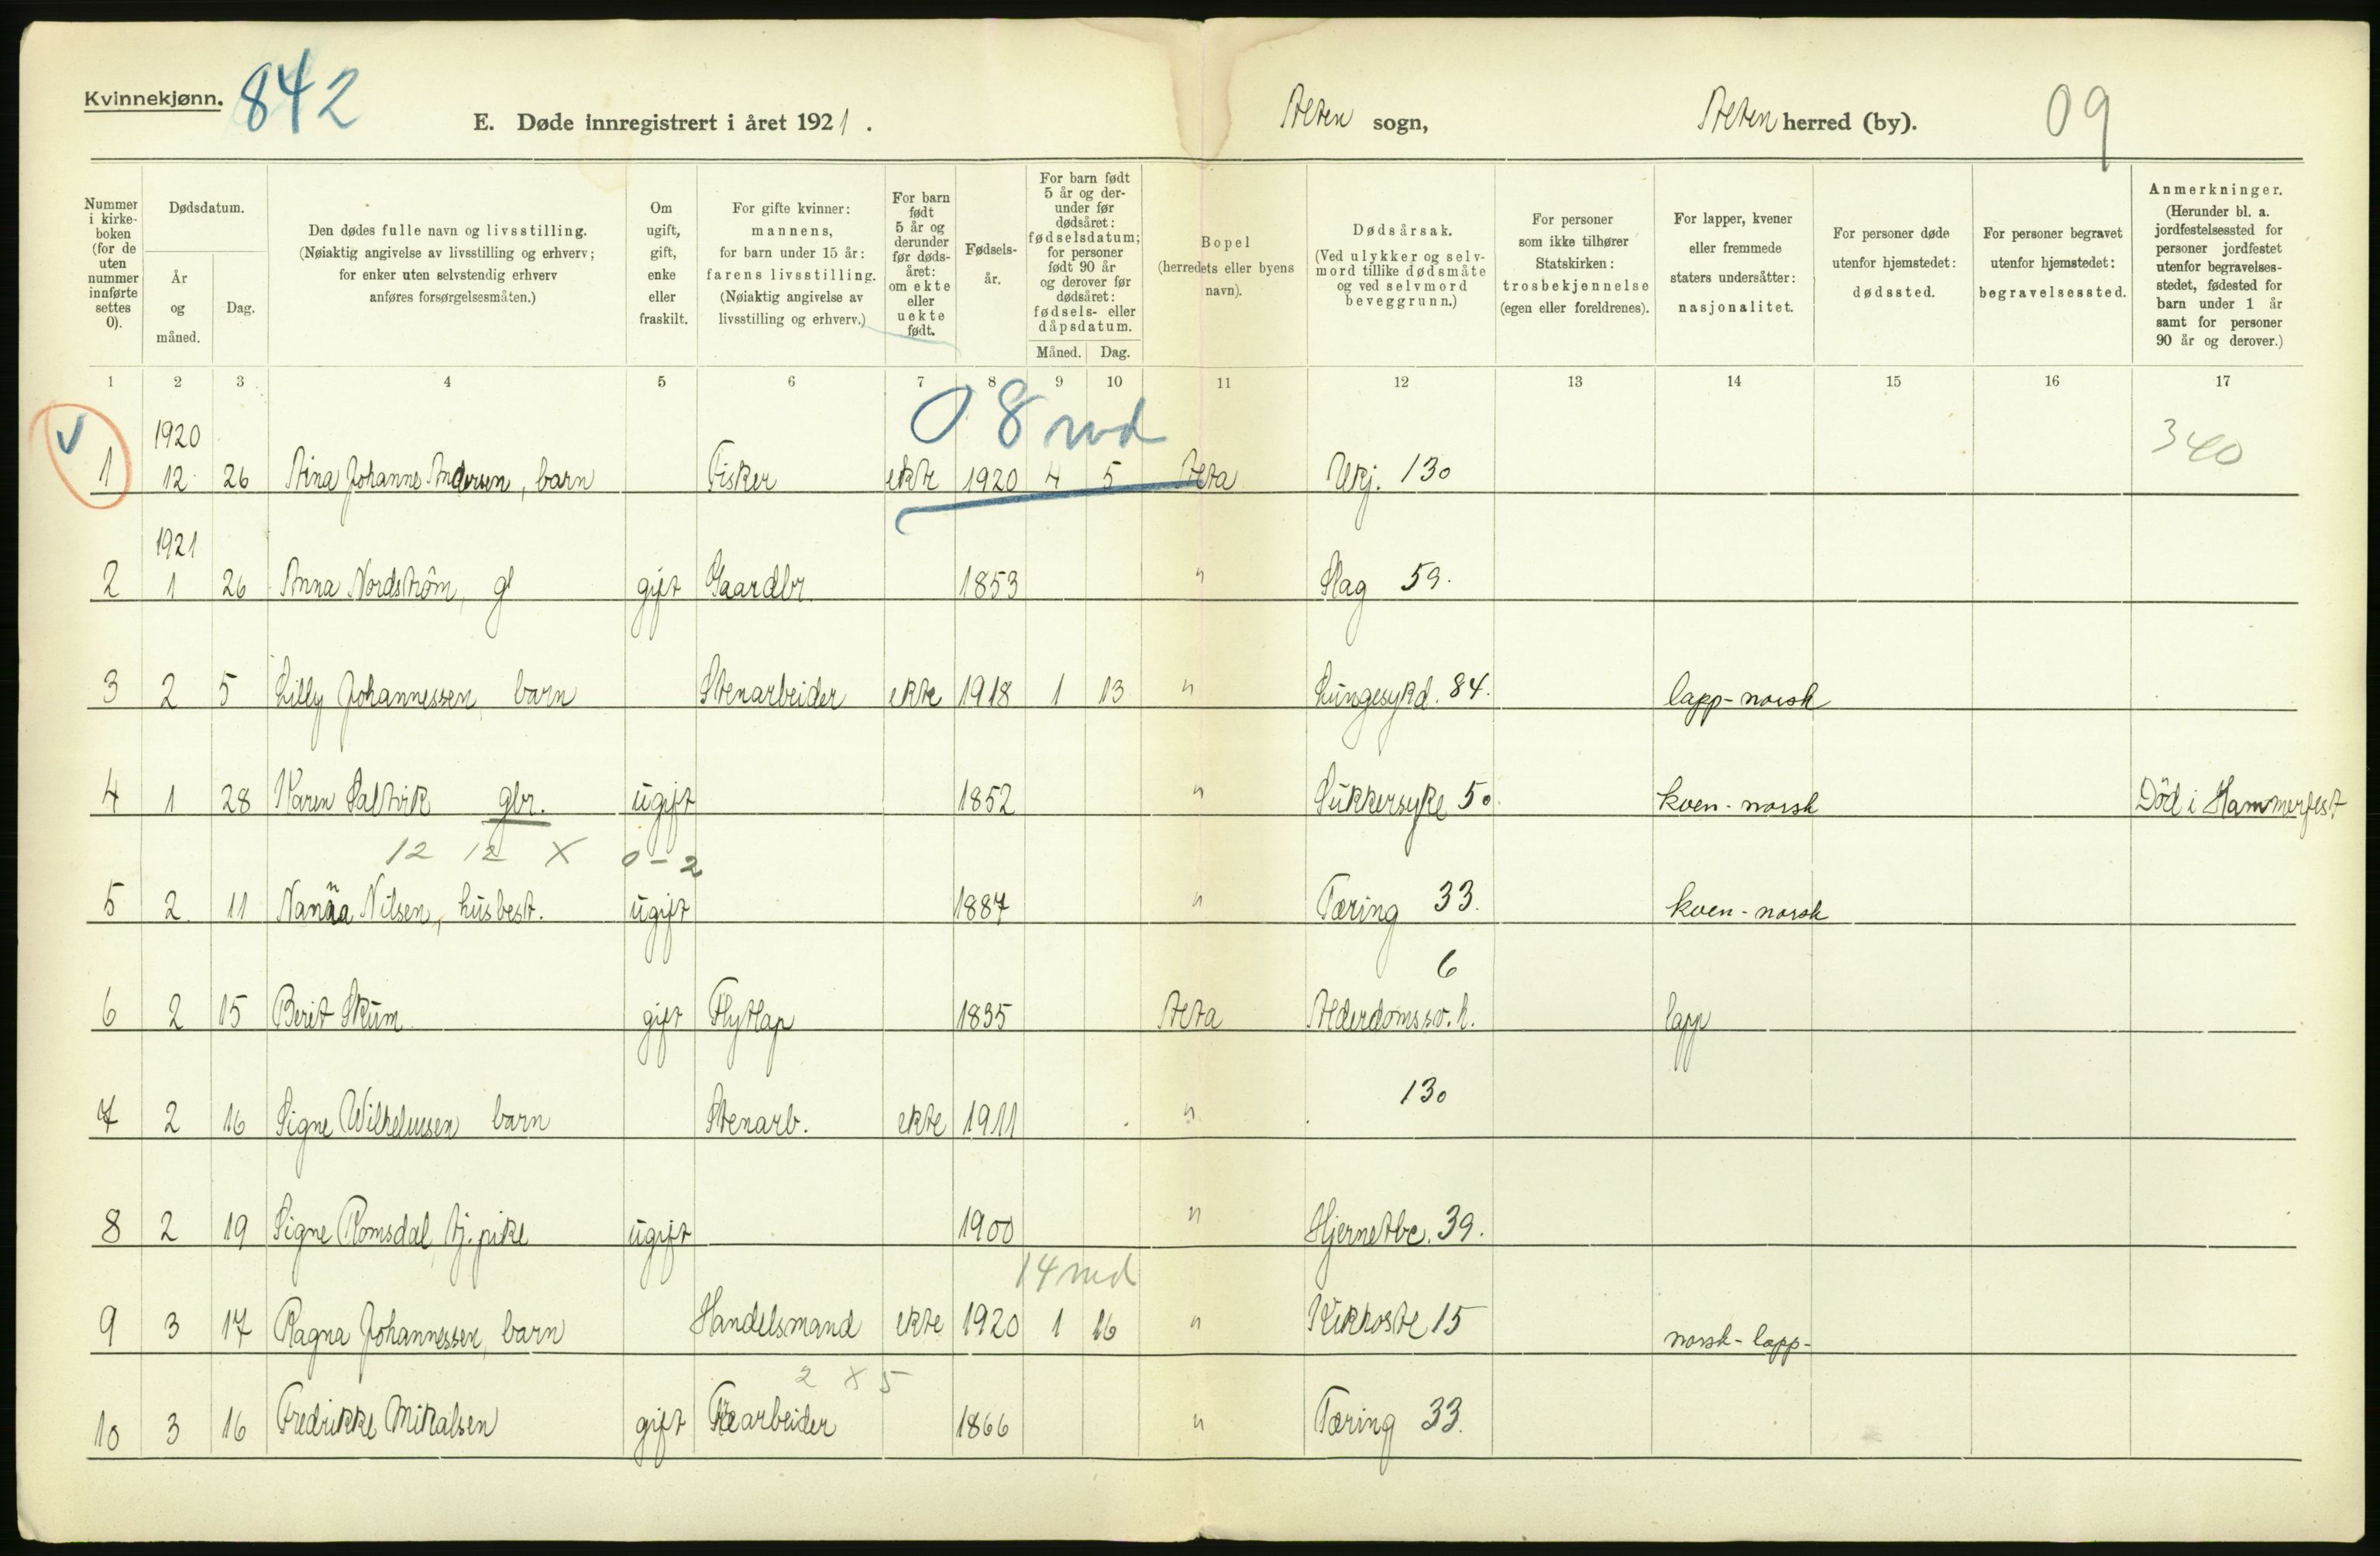 Kvinnekjønn. 842
E. Døde innregistrert i året 1921. Alten sogn, Alten herred (by). 09
Nummer i kirkeboken (for de uten nummer innførte settes 0).
Dødsdatum.
År og måned.
Dag.
Den dødes fulle navn og livsstilling. (Nøiaktig angivelse av livsstilling og erhverv; for enker uten selvstendig erhverv anføres forsørgelsesmåten.)
Om ugift, gift, enke eller fraskilt.
For gifte kvinner: mannens, for barn under 15 år: farens livsstilling. (Nøiaktig angivelse av livsstilling og erhverv.)
For barn født 5 år og derunder før dødsåret: om ekte eller uekte født.
Fødselsår.
For barn født 5 år og derunder før dødsåret: fødselsdatum; for personer født 90 år og derover før dødsåret: fødsels- eller dåpsdatum.
Måned. Dag.
Bopel (herredets eller byens navn).
Dødsårsak. (Ved ulykker og selvmord tillike dødsmåte og ved selvmord beveggrunn.)
For personer som ikke tilhører Statskirken: trosbekjennelse (egen eller foreldrenes).
For lapper, kvener eller fremmede staters undersåtter: nasjonalitet.
For personer døde utenfor hjemstedet: dødssted.
For personer begravet utenfor hjemstedet: begravelsessted.
Anmerkninger. (Herunder bl. a. jordfestelsessted for personer jordfestet utenfor begravelsesstedet, fødested for barn under 1 år samt for personer 90 år og derover.)
1 2 3 4 5 6 7 8 9 10 11 12 13 14 15 16 17
0 8 md
1920 340
1 12 26 Aina Johanne Andersen, barn Fisker ekte 1920 4 5 Alta Ukj. 130
1921
2 1 26 Anna Nordström, g gift Gaardbr. 1853 " Slag 59.
3 2 5 Lilly Johannessen barn Stenarbeider ekte 1918 1 13 " Lungesykd. 84. lapp-norsk
4 1 28 Karen Saltvik gbr. ugift 1852 " Sukkersyke 50. kven-norsk Död i Hammerfest
12 12 X 0-2
5 2 11 Nanna Nilsen, husbest. ugift 1887 " Tæring 33. kven-norsk
6
6 2 15 Berit Skum gift Flytlap 1835 Alta Alderdomssv.h. lapp
7 2 16 Signe Wilhelmsen barn Stenarb. ekte 1911 " 130
8 2 19 Signe Romsdal tj.pike ugift 1900 " Hjernetbc. 39.
14 md
9 3 17 Ragna Johannessen, barn Handelsmand ekte 1920 1 16 " Kikhoste 15 norsk-lapp-
2 X 5
10 3 16 Fredrikke Mikalsen gift arbeider 1866 " Tæring 33.